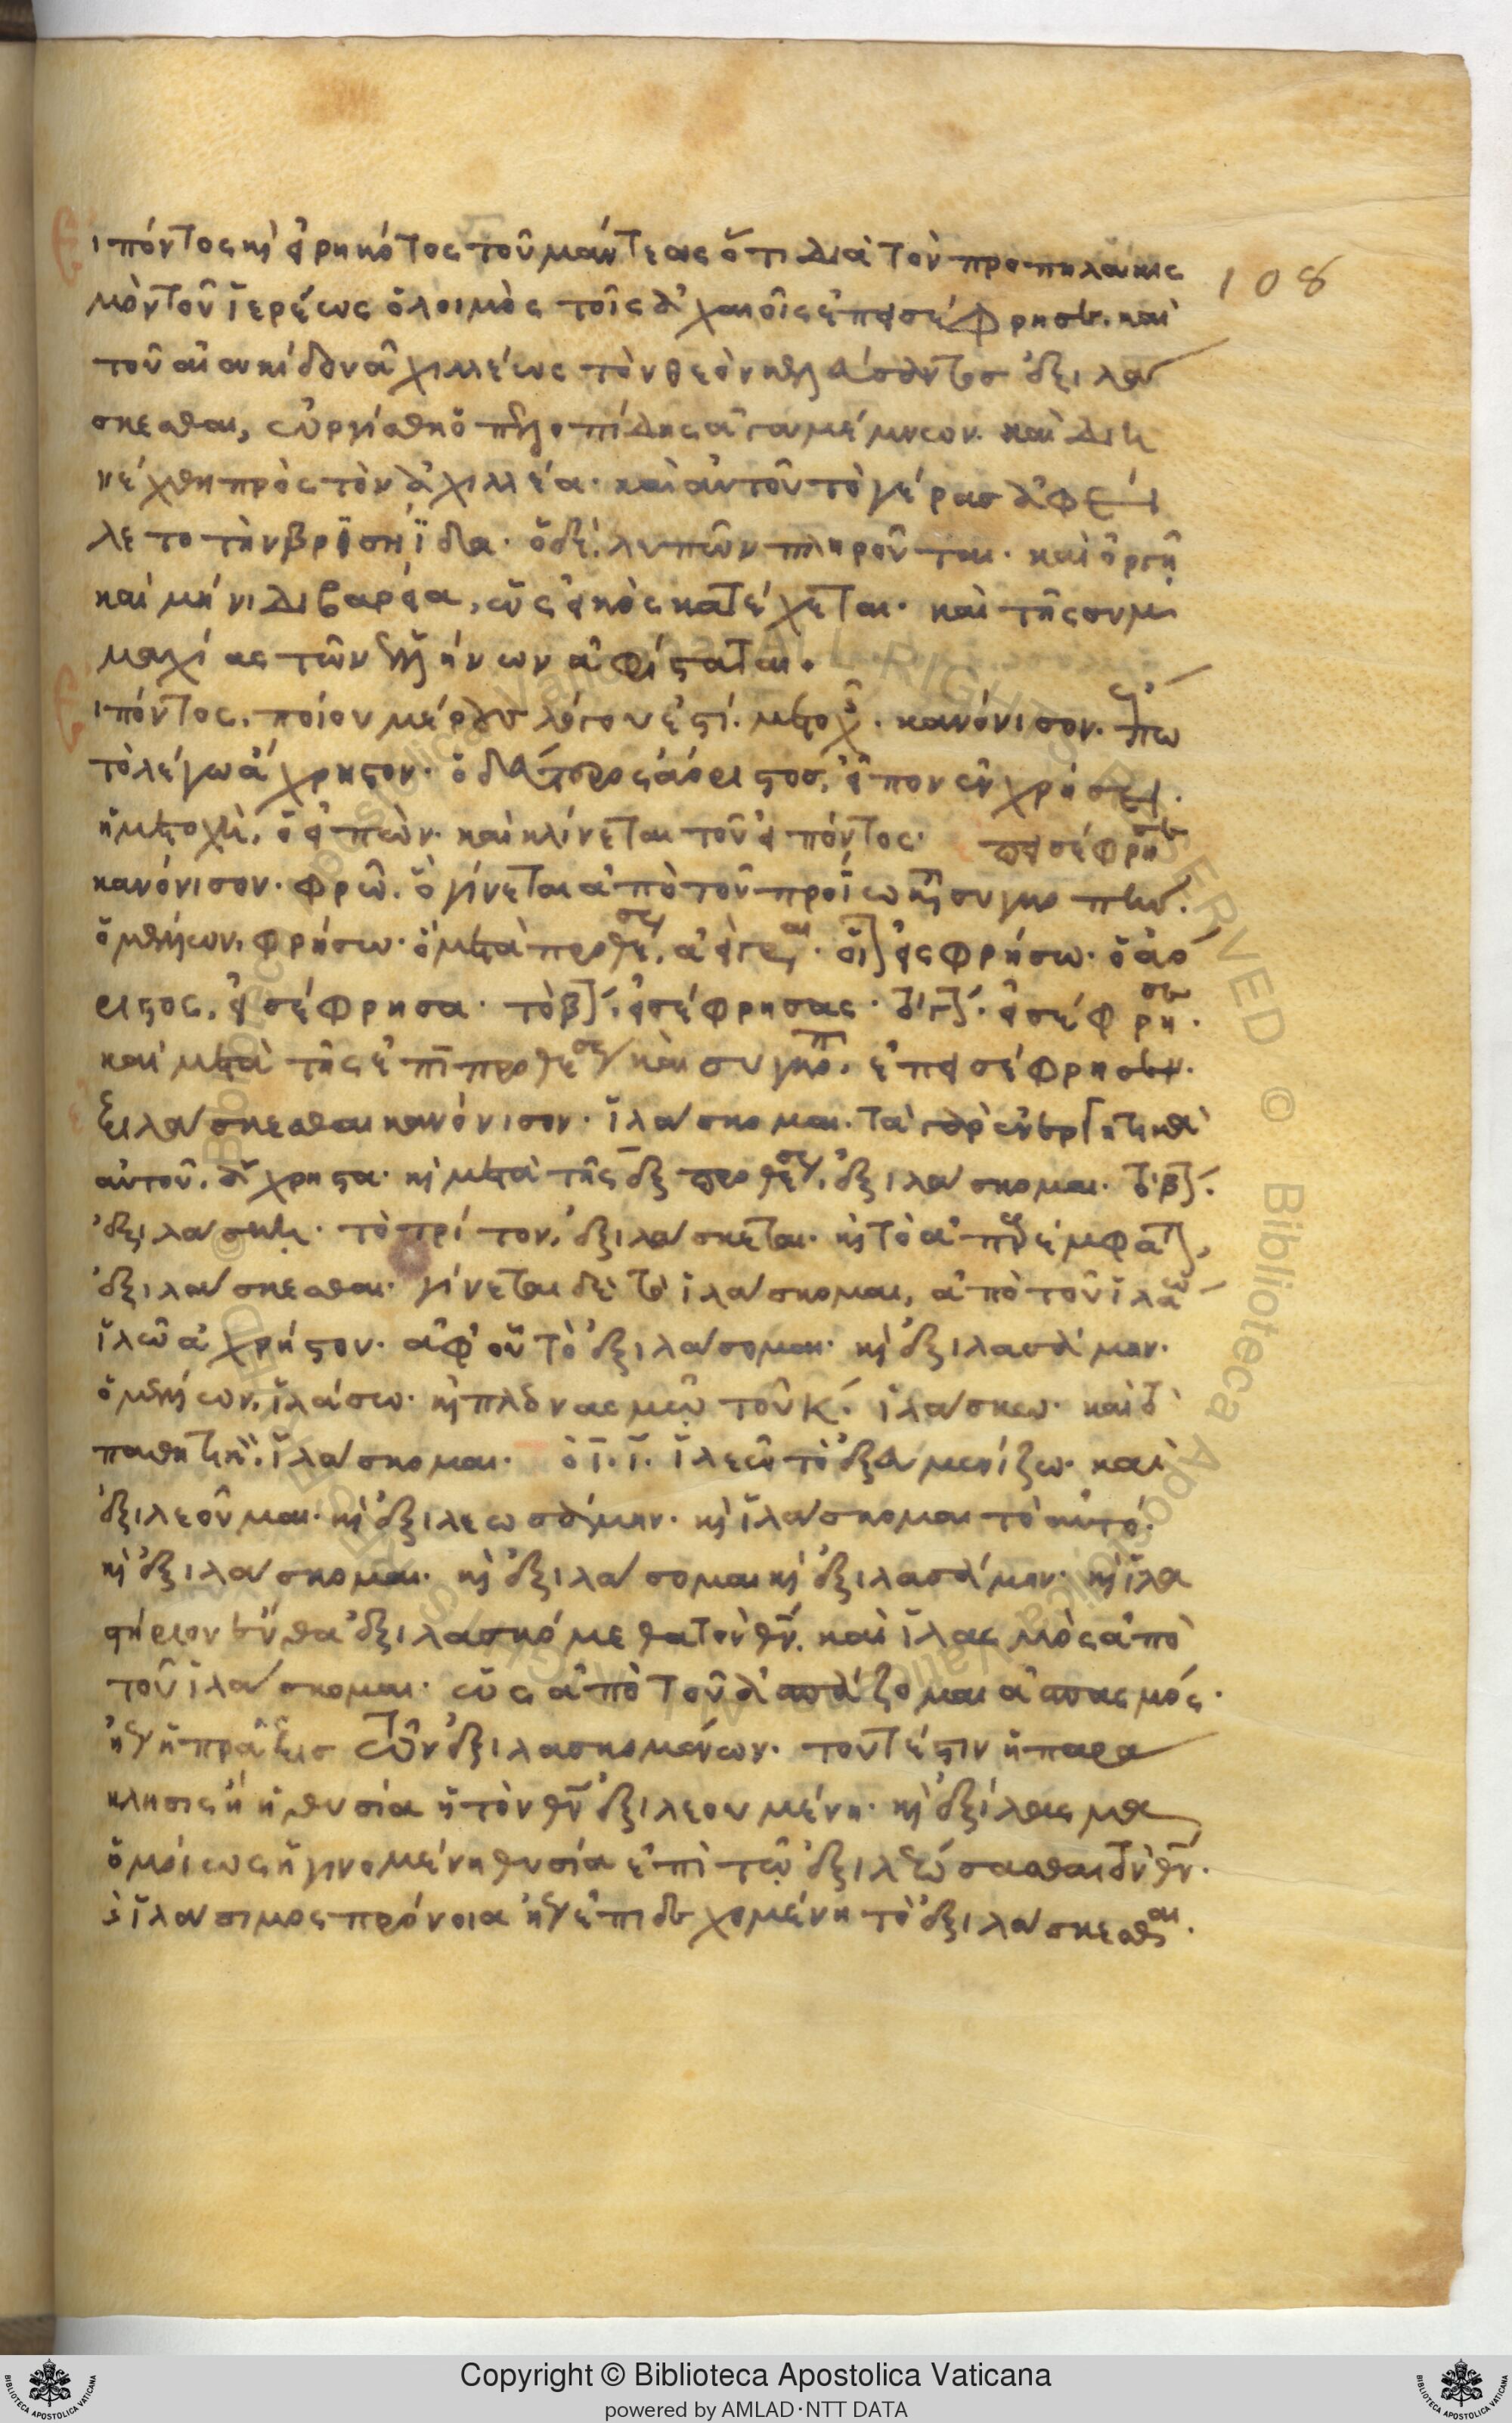 Ε
ιπόντος κὴ εἰρηκότος τοῦ μάντεως ὅτι διὰ τὸν προπηλακις
108
μὸν τοῦ ἱερέως ὁ λοιμὸς τοῖς ἀχαιοῖς ἐπεισέφρησεν. καὶ
τοῦ αἰακίδου ἀχιλλέως τὸν θεὸν ἐξιλα
σκεσθαι, ὠργίσθη ὁ πελοπίδης ἀγαμέμνων. καὶ διη
νέχθη πρὸς τὸν ἀχιλλέα. καὶ αὐτοῦ τὸ γέρας ἀφεί
λετο τὴν βρισηΐδα. ὁ δὲ, λυπῶν πληροῦται. καὶ ὀργῆ
καὶ μήνιδι βαρεία, ὡς εἰκὸς κατέχεται. καὶ τῆς συμ
μαχίας τῶν ἑλλήνων ἀφίσταται.
Ε
ιπόντος. ποίου μέρους λόγου ἐστί. μετοχῆς. κανόνισον. ἔπω
τὸ λέγω ἄχρηστον. ὁ δεύτερος ἀόριστος, εἶπον ἐν χρήσει.
ἡ μετοχὴ, ὁ εἰπών. καὶ κλίνεται τοῦ εἰπόντος. ἐπεισέφρησεν
κανόνισον. φρῶ. ὃ γίνεται ἀπὸ τοῦ προΐω κατὰ συγκοπήν.
ὁ μέλλων, φρήσω. ὁ μετὰ προθέσεως, εἰσφρήσω. ὁ ἀό
ριστος, εἰσέφρησα. τὸ β΄. εἰσέφρησας. τὸ γ΄. εἰσέφρησεν.
καὶ μετὰ τῆς ἐπὶ προθέσεως καὶ συγκοπῆ. ἐπεισέφρησεν.
ξιλάσκεσθαι κανόνισον. ἱλάσκομαι.
αὐτοῦ, ἄχρηστα. κὴ μετὰ τῆς ἐξ προθέσεως, ἐξιλάσκομαι. τὸ β΄.
ἐξιλάσκη. τὸ τρίτον, ἐξιλάσκεται. κὴ τὸ ἀπαρέμφατον,
ἐξιλάσκεσθαι. γίνεται δὲ τὸ ἱλάσκομαι, ἀπὸ τοῦ ἱλάω
ἱλῶ ἀχρήστου. ἀφ' οὗ τὸ ἐξιλάσομαι. κὴ ἐξιλασάμην.
ὁ μέλλων, ἱλάσω. κὴ πλεονασμῶ τοῦ κ. ἱλάσκω. καὶ τὸ
παθητικὸν, ἱλάσκομαι. ἱλεῶ τὸ ἐξευμενίζω. καὶ
ἐξιλεοῦμαι. κὴ ἐξιλεωσάμην. κὴ ἱλάσκομαι τὸ αὐτό.
κὴ ἐξιλάσκομαι. κὴ ἐξιλάσομαι κὴ ἐξιλασάμην. κὴ ἱλα
στήριον ἔνθα ἐξιλασκόμεθα τὸν θν. καὶ ἱλασμὸς ἀπὸ
τοῦ ἱλάσκομαι. ὡς ἀπὸ τοῦ ἀσπάζομαι ἀσπασμός.
ἤγουν ἡ πρᾶξις τῶν ἐξιλασκομένων. τουτέστιν ἡ παρα
κλησις ἢ ἡ θυσία ἡ τὸν θν ἐξιλεουμένη. κὴ ἐξίλασμα
ὁμοίως ἡ γινομένη θυσία ἐπὶ τῶ ἐξιλεώσασθαι τὸν θν.
ἱλάσιμος πρόνοια ἤγουν ἐπιδεχομένη τὸ ἐξιλάσκεσθαι.
Copyright © Biblioteca Apostolica Vaticana
powered by AMLAD·NTT DATA